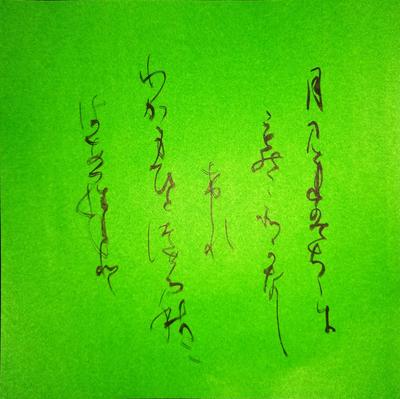 月みれはちゝに
ものこそかなし
けれ
わか身ひとつの秋に
はあらねと